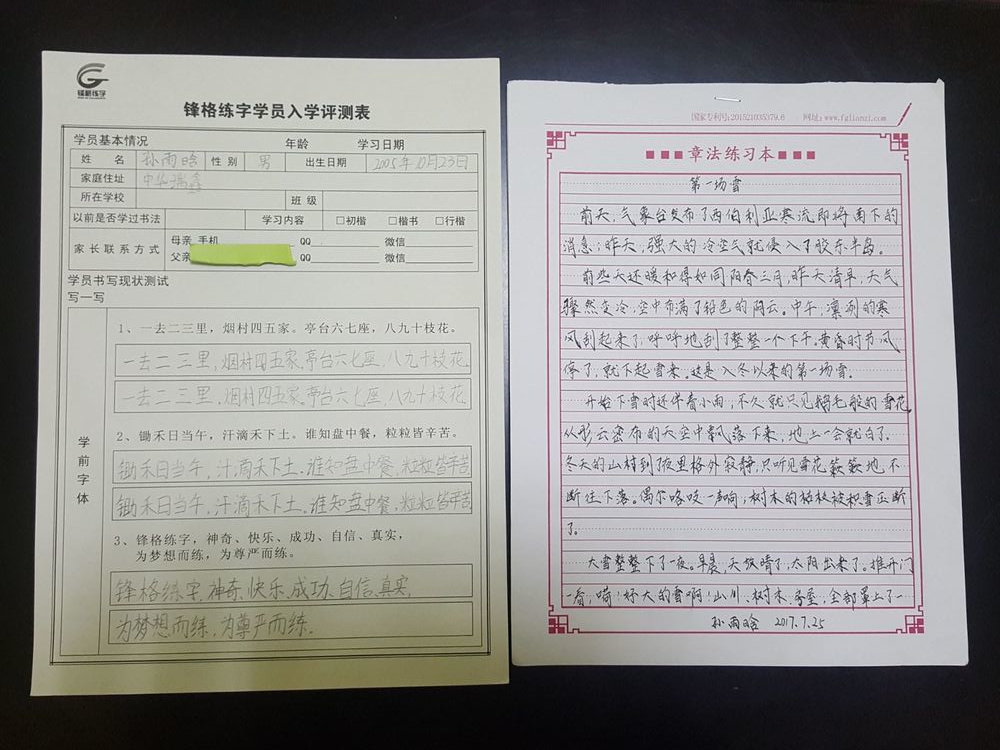 锋格练字
锋格练字学员入学评测表
学员基本情况 年龄 学习日期
姓 名 孙雨晗 性 别 男 出生日期 2005年10月23日
家庭住址 中华瑞鑫
所在学校 班 级
以前是否学过书法 学习内容 □初楷 □楷书 □行楷
家 长 联 系 方 式
母亲 手机 QQ 微信
父亲 QQ 微信
学员书写现状测试
写一写
学前字体
1、一去二三里，烟村四五家。亭台六七座，八九十枝花。
一去二三里，烟村四五家。亭台六七座，八九十枝花。
一去二三里，烟村四五家。亭台六七座，八九十枝花
2、锄禾日当午，汗滴禾下土。谁知盘中餐，粒粒皆辛苦。
锄禾日当午，汗滴禾下土，谁知盘中餐，粒粒皆辛苦
锄禾日当午，汗滴禾下土，谁知盘中餐，粒粒皆辛苦
3、锋格练字，神奇、快乐、成功、自信、真实，
为梦想而练，为尊严而练。
锋格练字，神奇、快乐、成功、自信、真实，
为梦想而练，为尊严而练。
国家专利号:201521035379.6 网址：www.fglianzi.com
章法练习本
第一场雪
前天，气象台发布了西伯利亚寒流即将南下的
消息；昨天，强大的冷空气就侵入了胶东半岛。
前些天还暖和得如同阳春三月，昨天清早，天气
骤然变冷，空中布满了铅色的阴云。中午，凛冽的寒
风刮起来了，呼呼地刮了整整一个下午。黄昏时节，风
停了，就下起雪来。这是入冬以来的第一场雪。
开始下雪时还伴着小雨，不久就只见鹅毛般的雪花，
从彤云密布的天空中飘落下来，地上一会就白了。
冬天的山村到了夜里格外寂静，只听见雪花簌簌地不
断往下落。偶尔咯吱一声响，树木的枯枝被积雪压断
了。
大雪整整下了一夜。早晨，天放晴了，太阳出来了。推开门
一看，嗬！好大的雪啊！山川、树木、房屋，全部罩上了一
孙雨晗 2017.7.25